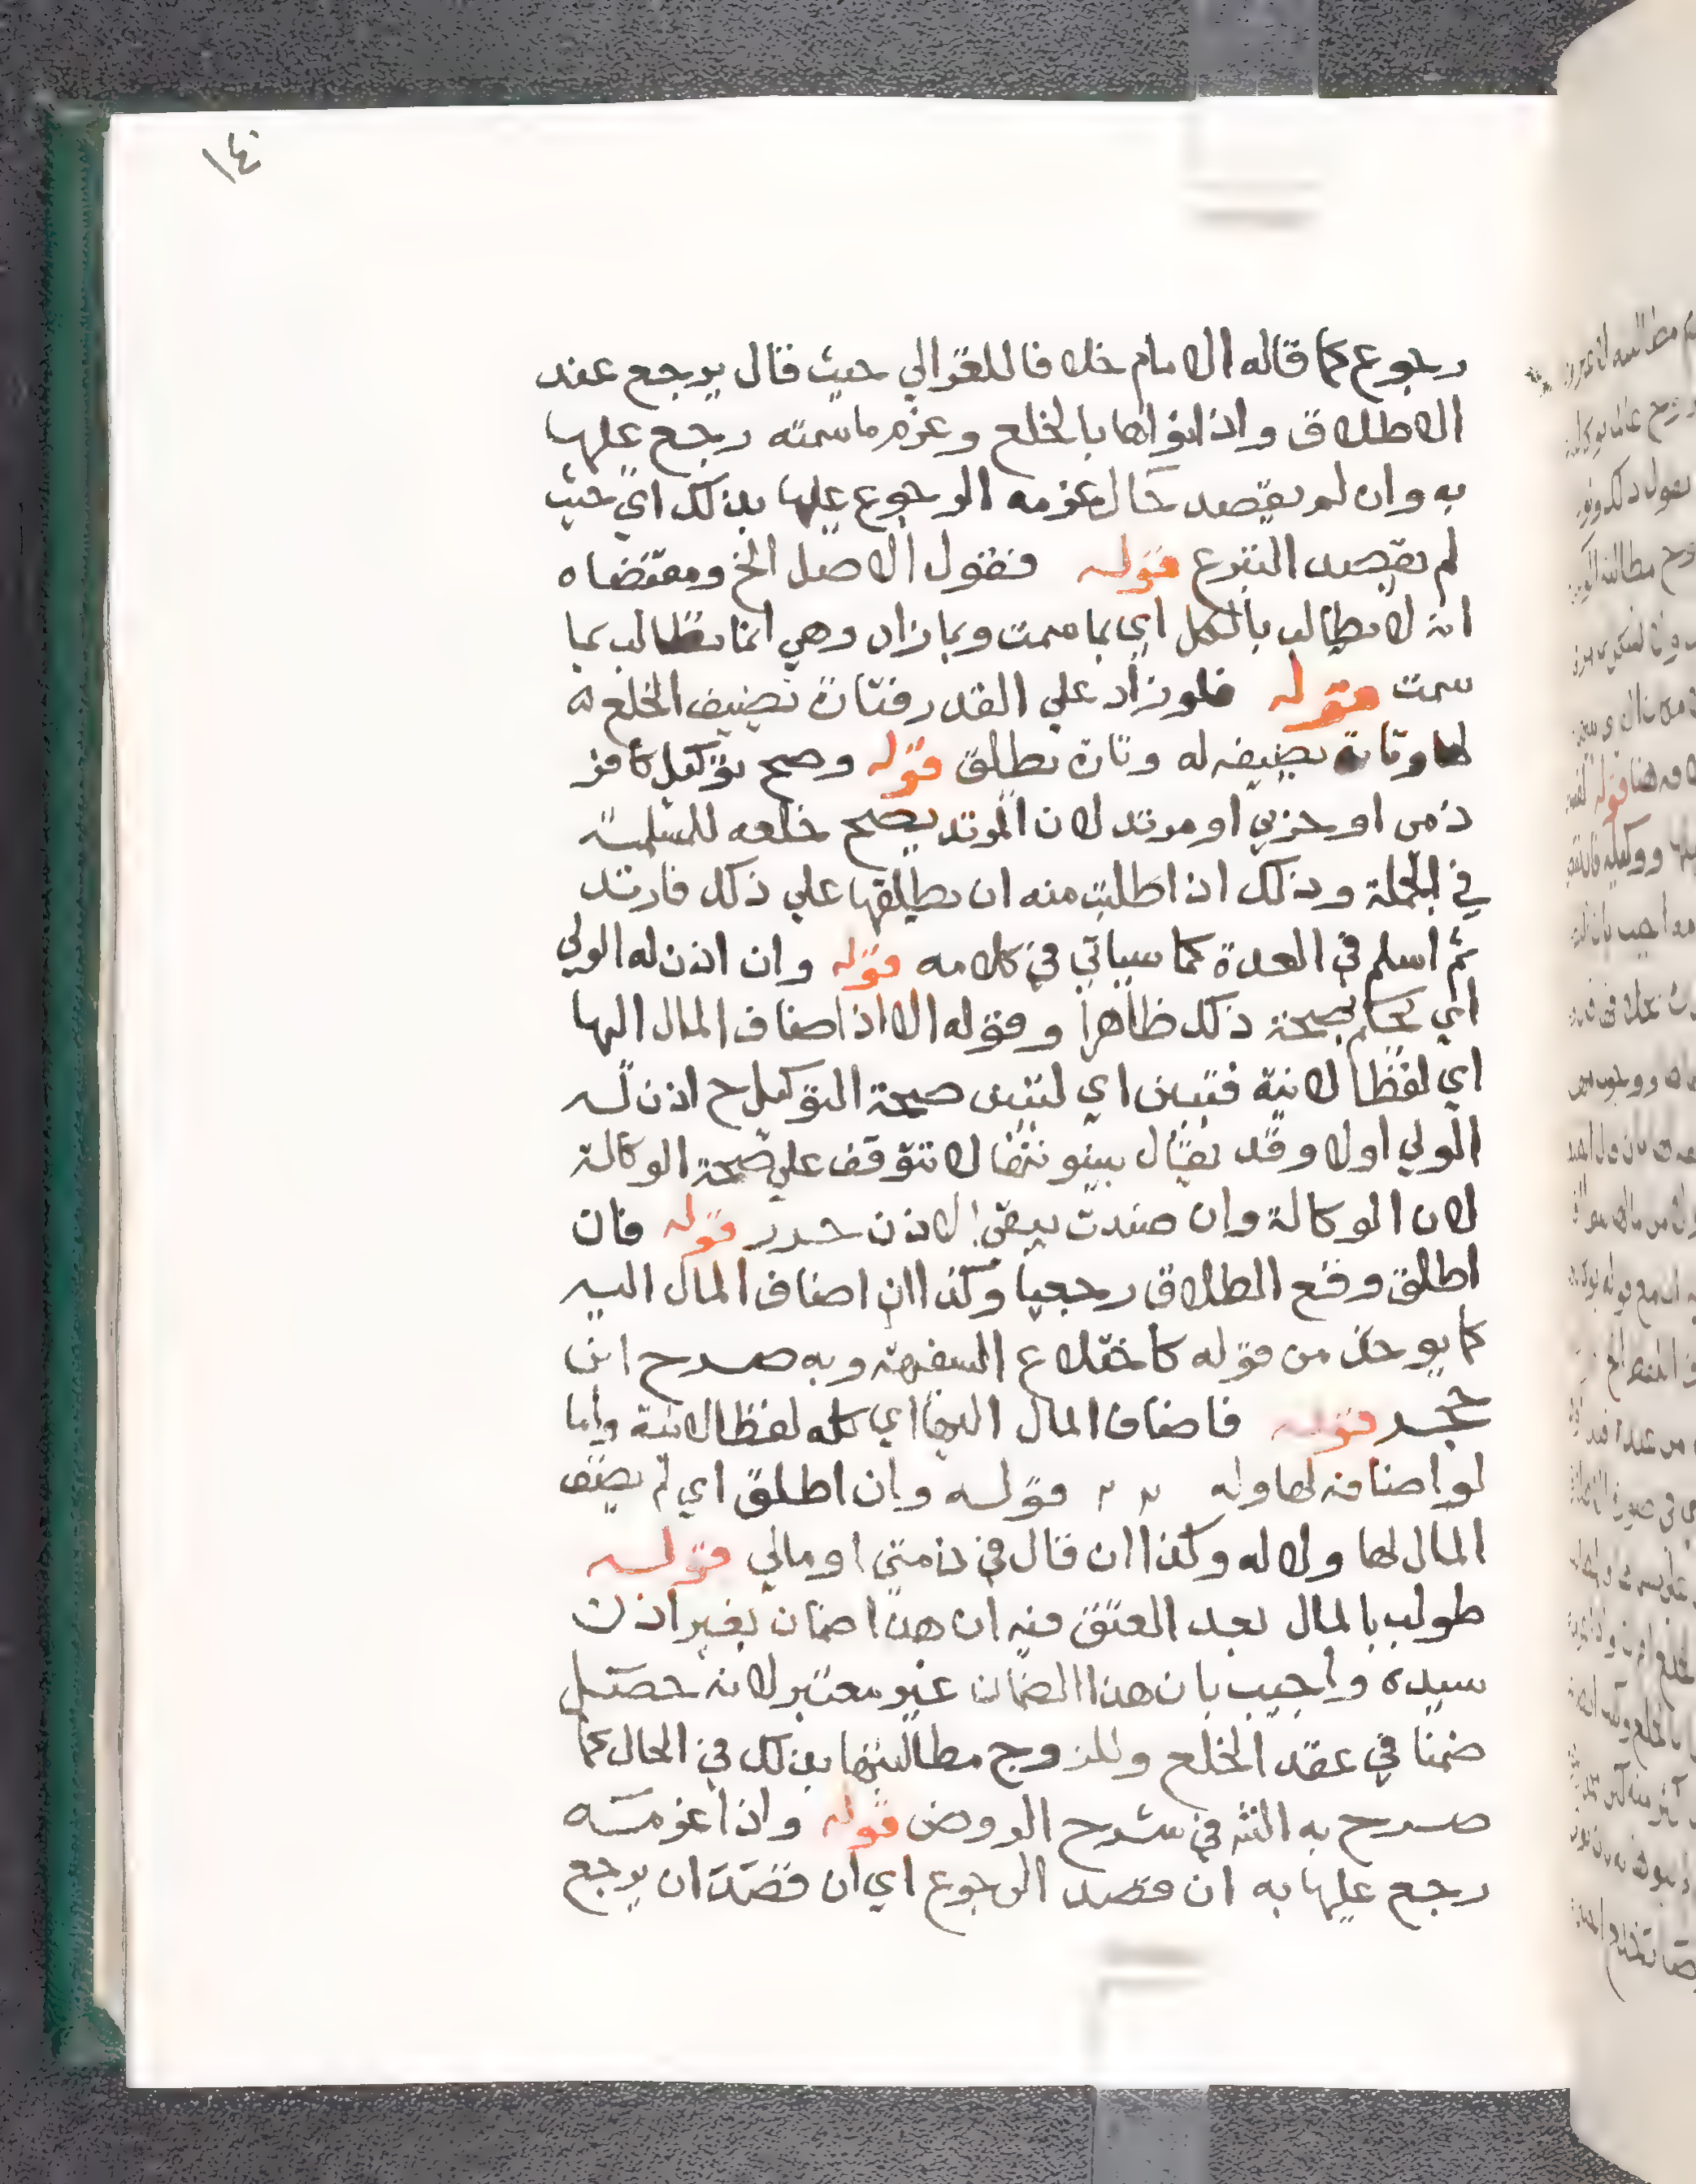 ١٤٠
رجوع كما قاله الامام خلافا للغزالي حيث قال يرجع عند
الاطلاق واذا نواها بالخلع وغرم ما سمته رجع عليها
به وان لم يقصد حال غرمه الرجوع عليها بذلك اي حيث
لم يقصد التبرع قوله فنقول الاصل الخ ومقتضاه
انه لا يطالب بالكل اي بما سمت وبما زاد وهي انما يطالب بما
سمت قوله فلو زاد علي القدر فتارة نضيف الخلع
لها وتارة يضيفه له وتارة يطلق قوله وصح توكيل كافر
ذمي او حربي او مرتد لان المرتد يصح خلعه للمسلمة
في الجملة وذلك اذا طلبت منه ان يطلقها علي ذلك فارتد
ثم اسلم في العدة كما سياتي في كلامه قوله وان اذن له الولي
اي يحكم بصحة ذلك ظاهرا وقوله الا اذا اضاف المال اليها
اي لفظا لا نية فتبين اي لتبين صحة التوكيل ح اذن له
الولي اولا وقد يقال بينونتها لا تتوقف علي صحة الوكالة
لان الوكالة وان فسدت يبقي الاذن قوله فان
اطلق وقع الطلاق رجعيا وكذا ان اضاف المال اليه
كما يوخذ من قوله كاختلاع السفيهة وبه صرح ابن
حجر قوله فاضاف المال اليها اي كله لفظا لا نية واما
لو اضافه لها وله قوله وان اطلق اي لم يضف
المال لها ولا له وكذا ان قال في ذمتي او مالي قوله
طولب بالمال بعد العتق فيه ان هذا ضمان بغير اذن
سيده واجيب بان هذا الضمان غير معتبر لانه حصل
ضمنا في عقد الخلع وللزوج مطالبتها بذلك في الحال كما
صرح به الش في شرح الروض قوله واذا غرمه
رجع عليها به ان قصد الرجوع اي ان قصد ان يرجع